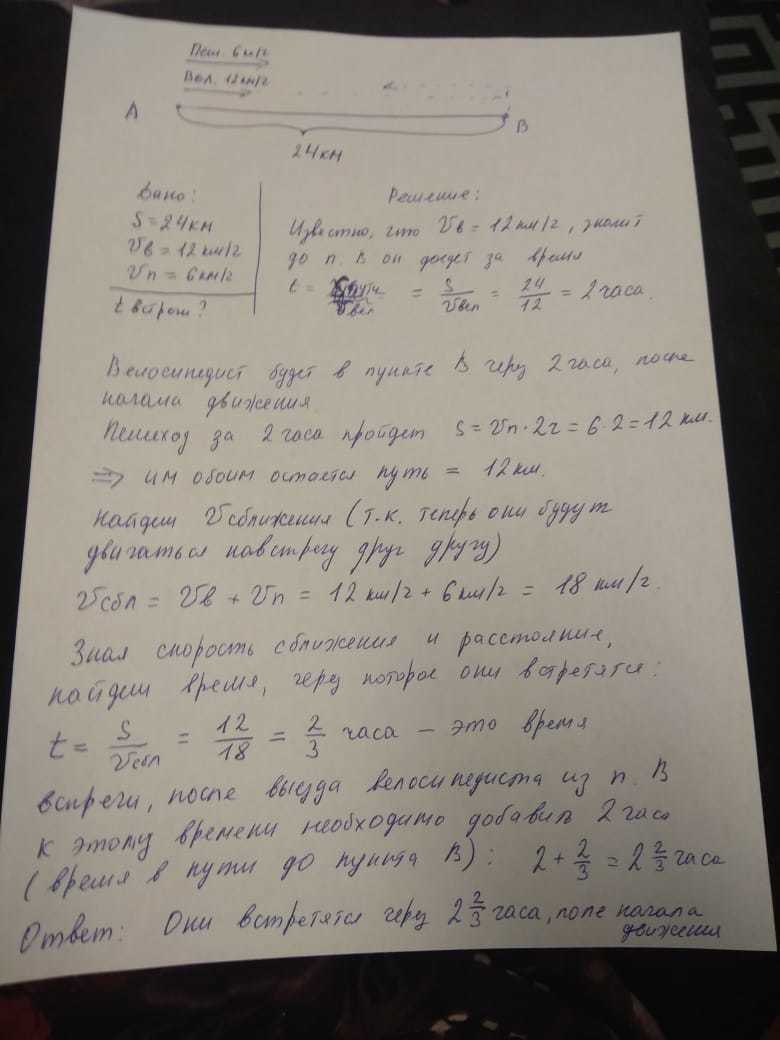 Пеш. 6 км/г
Вел. 12 км/г
А
В
24 км
Дано:
S = 24 км
Vв = 12 км/г
Vп = 6 км/г
t встреч?
Решение:
Известно, что Vв = 12 км/г, значит
до п. В он доедет за время
t = = S/Vвел = 24/12 = 2 часа.
Велосипедист будет в пункте В через 2 часа, после
начала движения.
Пешеход за 2 часа пройдет S = Vп · 2г = 6 · 2 = 12 км.
⇒ им обоим остается путь = 12 км.
Найдем Vсближения (т.к. теперь они будут
двигаться навстречу друг другу)
Vсбл = Vв + Vп = 12 км/г + 6 км/г = 18 км/г.
Зная скорость сближения и расстояние,
найдем время, через которое они встретятся:
t = S/Vсбл = 12/18 = 2/3 часа – это время
встречи, после выезда велосипедиста из п. В
к этому времени необходимо добавить 2 часа
(время в пути до пункта В): 2 + 2/3 = 2 2/3 часа
Ответ: Они встретятся через 2 2/3 часа, после начала
движения